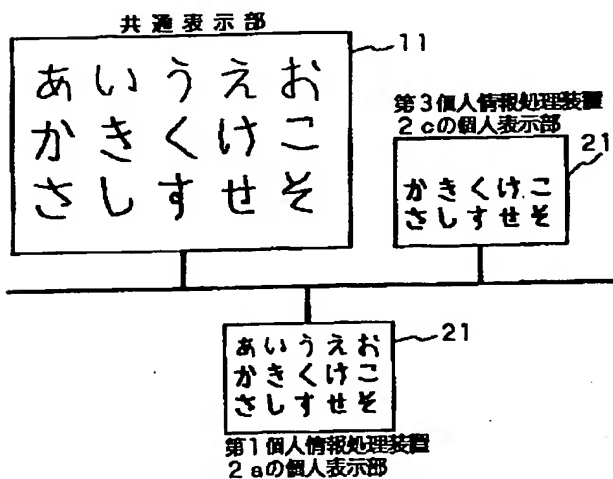 共通表示部
11
あいうえお
かきくけこ
さしすせそ
第3個人情報処理装置
2cの個人表示部
21
かきくけこ
さしすせそ
21
あいうえお
かきくけこ
さしすせそ
第1個人情報処理装置
2aの個人表示部